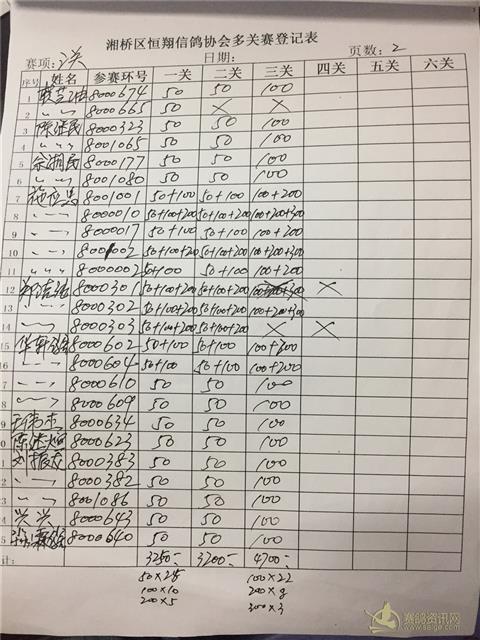 湘桥区恒翔信鸽协会多关赛登记表
赛项: 2关 日期: 页数: 2
序号 姓名 参赛环号 一关 二关 三关 四关 五关 六关
1 8000674 50 50 100
2 〃 〃 8000665 50 × ×
3 8000323 50 50 100
4 〃 〃 8001065 50 50 100
5 余湘民 8000177 50 50 100
6 〃 〃 8001080 50 50 100
7 8001001 50+100 50+100 100+200
8 〃 〃 8000010 50+100+200 50+100+200 100+200+300
9 〃 〃 8000017 50+100 50+100 100+200
10 〃 〃 50+100+200 50+100+200 100+200+300
11 〃 〃 8000002 50+100 50+100 100+200
12 8000301 50+100+200 50+100+200 ×
13 〃 〃 8000302 50+100+200 50+100+200 100+200+300
14 〃 〃 8000303 50+100+200 50+100+200 × ×
15 8000602 50+100 50+100
16 〃 〃 8000604 50+100 50+100 100+200
7 〃 〃 8000610 50 50 100
8 〃 〃 8000609 50 50 100
9 8000634 50 50 100
0 8000623 50 50 100
1 刘振友 8000383 50 50 100
2 〃 〃 8000382 50 50 100
3 〃 〃 8001086 50 50 100
4 兴兴 8000643 50 50 100
5 8000640 50 50 100
计: 3250 3200 4700
50×25 100×22
100×10 200×8
200×5 300×3
赛鸽资讯网
www.saige.com